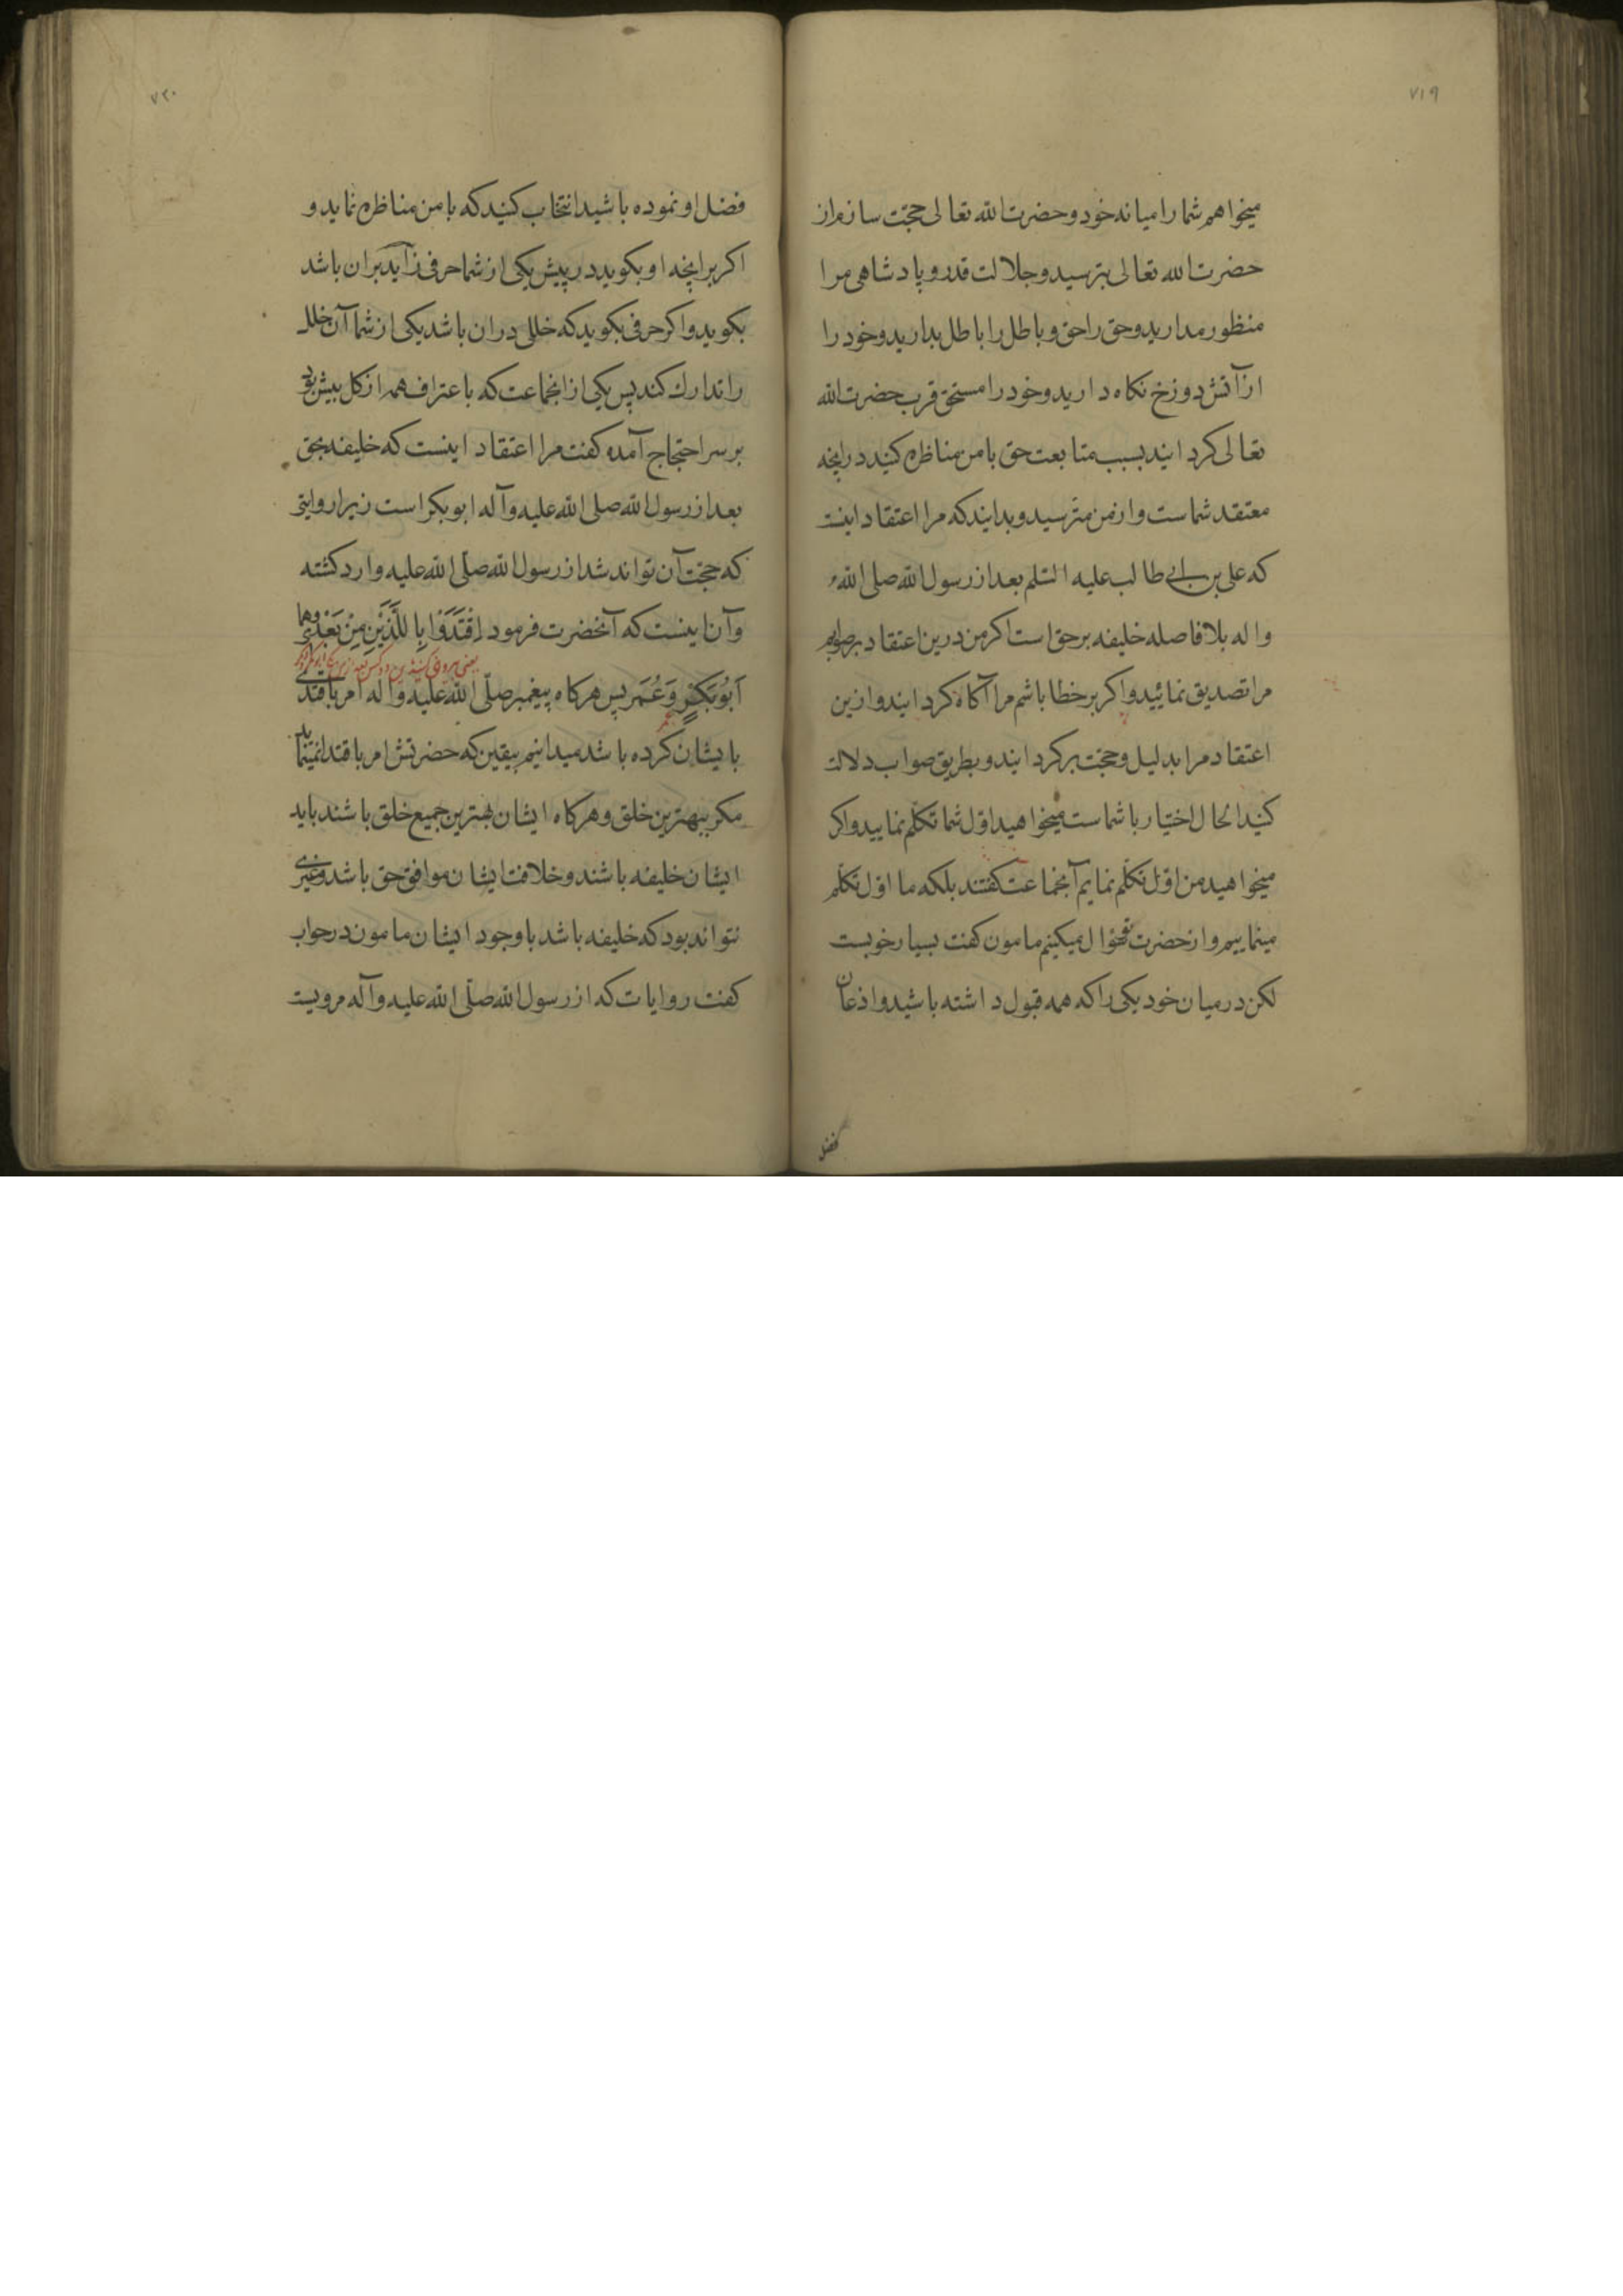 ۷۱۹
میخواهم شما را میانه خود و حضرت الله تعالی حجّت سازم از
حضرت الله تعالی بترسید و جلالت قدر و پادشاهی مرا
منظور مدارید و حق را حق و باطل را باطل بدارید و خود را
از آتش دوزخ نکاه دارید و خود را مستحق قرب حضرت الله
تعالی کردانید بسبب متابعت حق با من مناظره کنید در انچه
معتقد شماست و از من مترسید و بدانید که مرا اعتقاد اینست
که علی بن ابی طالب علیه السّلم بعد از رسول الله صلی الله
و اله بلا فاصله خلیفه بر حق است اکر من درین اعتقاد بر صوابم
مرا تصدیق نمائید و اکر بر خطا باشم مرا آکاه کردانید و ازین
اعتقاد مرا بدلیل و حجت برکردانید و بطریق صواب دلالت
کنید الحال اختیار با شماست میخواهید اوّل شما تکلّم نمایید و اکر
میخواهید من اوّل تکلّم نمایم آنجماعت کفتند بلکه ما اوّل تکلّم
مینماییم و از حضرت تو سؤال میکینم مامون کفت بسیار خوبست
لکن در میان خود یکی را که همه قبول داشته باشید و اذعان
فضل
۷۲۰
فضل او نموده باشید انتخاب کنید که با من مناظره نماید و
اکر بر انچه او بکوید در پیش یکی از شما حرفی زآید بران باشد
بکوید و اکر حرفی بکوید که خللی دران باشد یکی از شما آن خلل
را تدارك کند پس یکی از انجماعت که باعتراف همه از کل بیش بود
بر سر احتجاج آمده کفت مرا اعتقاد اینست که خلیفه بحق
بعد از رسول الله صلی الله علیه و آله ابو بکر است زیرا روایتی
که حجّت آن تواند شد از رسول الله صلّی الله علیه وارد کشته
و آن اینست که آنحضرت فرمود اِقْتَدَوْا بِا للَّذَیْنِ مِنْ بَعْدی وهما
یعنی پیروی کنید باین دو کس بعد از من یعنی ابوبکر و عمر
اَبُو بَکْرٍ وَ عُمَر پس هرکاه پیغمبر صلّی الله علیه و اله امر باقتدای
بایشان کرده باشد میدانیم بیقین که حضرتش امر باقتدا نمینماید
مکر ببهترین خلق و هرکاه ایشان بهترین جمیع خلق باشند باید
ایشان خلیفه باشند و خلافت ایشان موافق حق باشد و غیری
نتواند بود که خلیفه باشد با وجود ایشان مامون در جواب
کفت روایات که از رسول الله صلّی الله علیه و آله مرویست